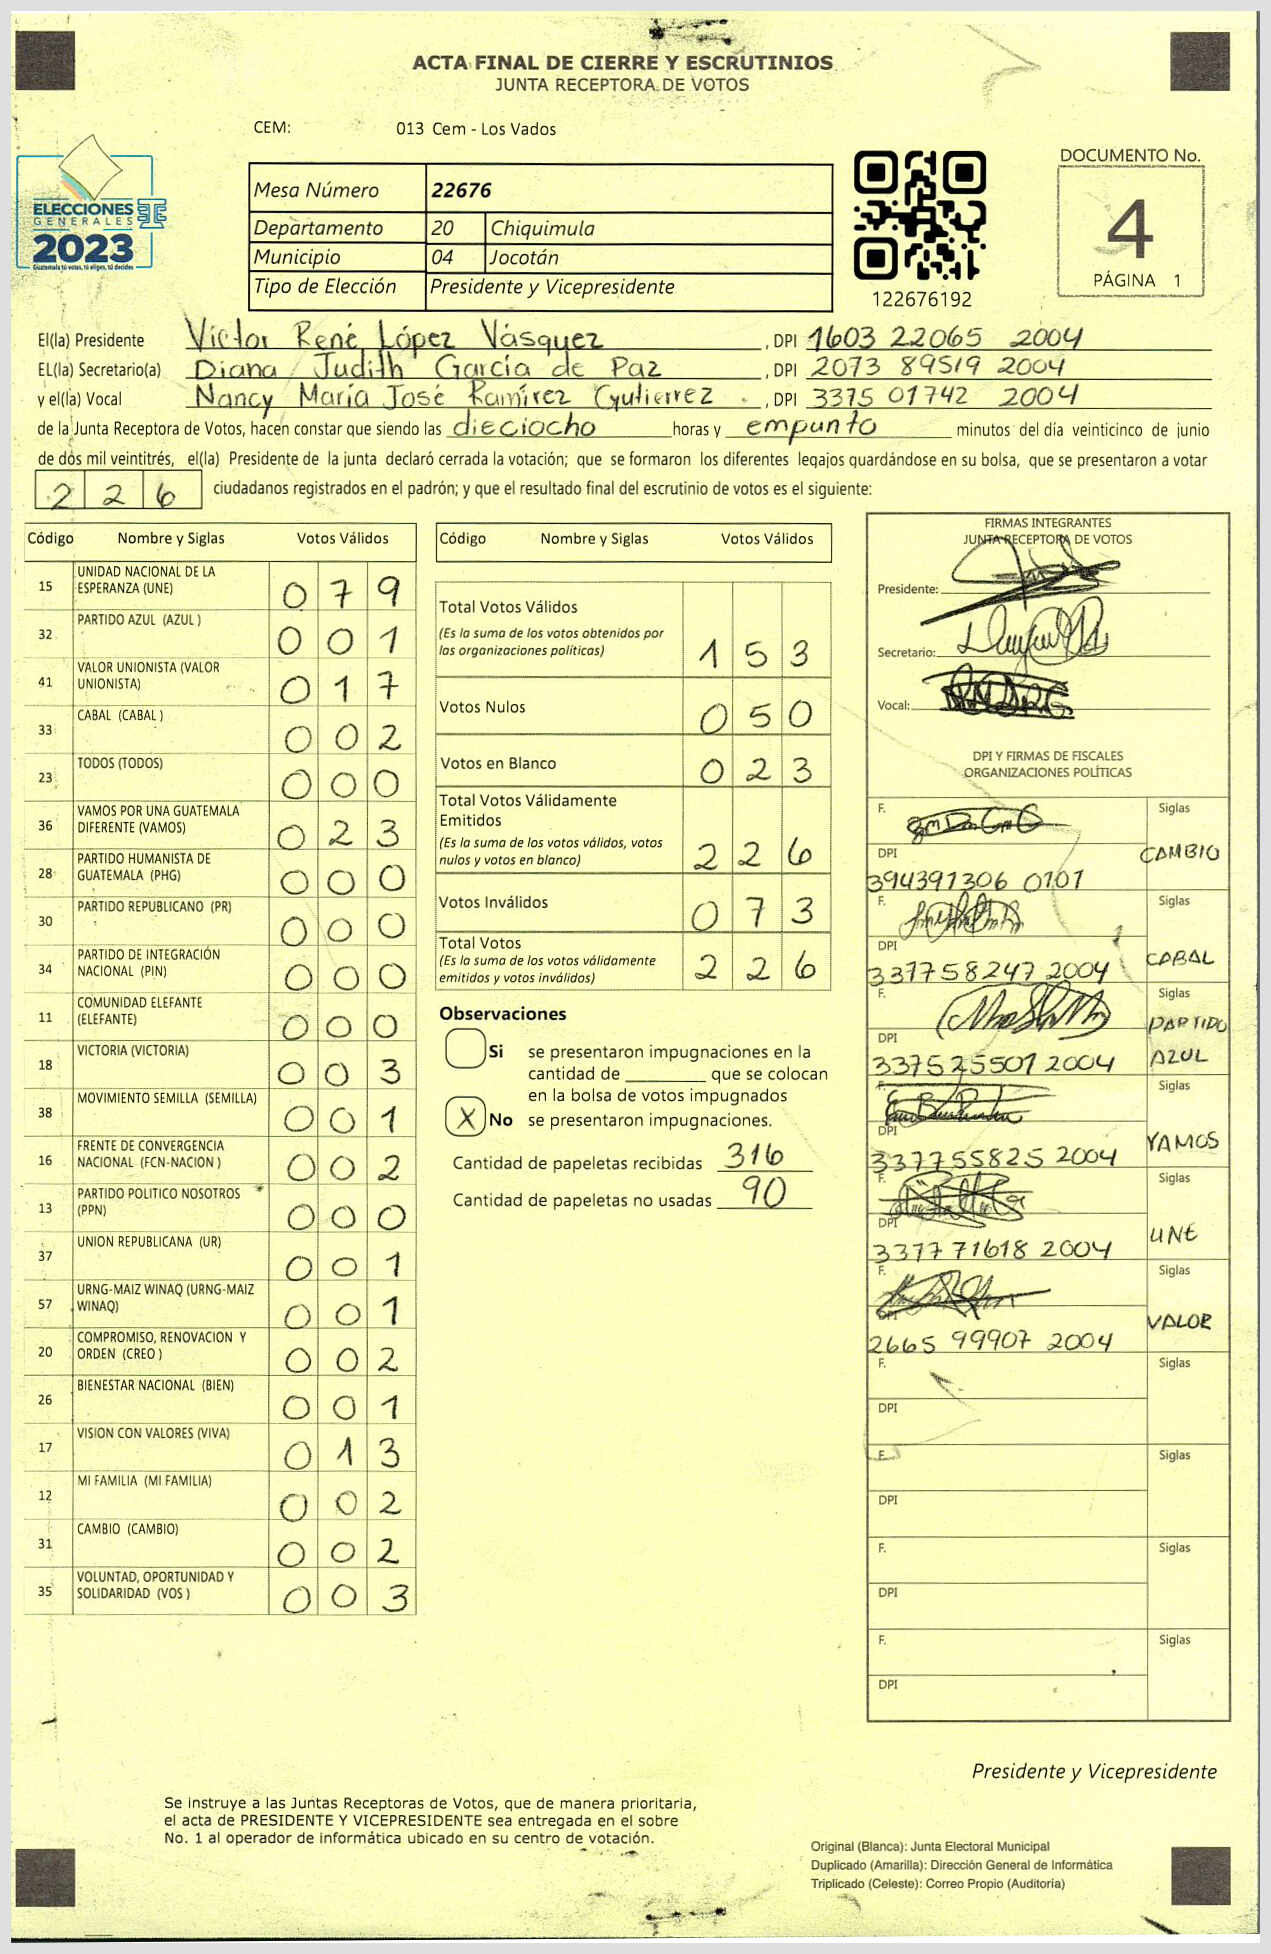 ACTA FINAL DE CIERRE Y ESCRUTINIOS
JUNTA RECEPTORA DE VOTOS
CEM: 013 Cem - Los Vados
ELECCIONES
GENERALES
2023
Guatemala tú votas, tú eliges, tú decides
Mesa Número 22676
Departamento 20 Chiquimula
Municipio 04 Jocotán
Tipo de Elección Presidente y Vicepresidente
122676192
DOCUMENTO No.
4
PÁGINA 1
El(la) Presidente Víctor René López Vásquez, DPI 1603 22065 2004
EL(la) Secretario(a) Diana Judith García de Paz, DPI 2073 89519 2004
y el(la) Vocal Nancy María José Ramírez Gutierrez, DPI 3375 01742 2004
de la Junta Receptora de Votos, hacen constar que siendo las dieciocho horas y empunto minutos del día veinticinco de junio
de dos mil veintitrés, el(la) Presidente de la junta declaró cerrada la votación; que se formaron los diferentes legajos guardándose en su bolsa, que se presentaron a votar
226 ciudadanos registrados en el padrón; y que el resultado final del escrutinio de votos es el siguiente:
Código Nombre y Siglas Votos Válidos
15 UNIDAD NACIONAL DE LA ESPERANZA (UNE) 079
32 PARTIDO AZUL (AZUL ) 001
41 VALOR UNIONISTA (VALOR UNIONISTA) 017
33 CABAL (CABAL ) 002
23 TODOS (TODOS) 000
36 VAMOS POR UNA GUATEMALA DIFERENTE (VAMOS) 023
28 PARTIDO HUMANISTA DE GUATEMALA (PHG) 000
30 PARTIDO REPUBLICANO (PR) 000
34 PARTIDO DE INTEGRACIÓN NACIONAL (PIN) 000
11 COMUNIDAD ELEFANTE (ELEFANTE) 000
18 VICTORIA (VICTORIA) 003
38 MOVIMIENTO SEMILLA (SEMILLA) 001
16 FRENTE DE CONVERGENCIA NACIONAL (FCN-NACION ) 002
13 PARTIDO POLITICO NOSOTROS (PPN) 000
37 UNION REPUBLICANA (UR) 001
57 URNG-MAIZ WINAQ (URNG-MAIZ WINAQ) 001
20 COMPROMISO, RENOVACION Y ORDEN (CREO ) 002
26 BIENESTAR NACIONAL (BIEN) 001
17 VISION CON VALORES (VIVA) 013
12 MI FAMILIA (MI FAMILIA) 002
31 CAMBIO (CAMBIO) 002
35 VOLUNTAD, OPORTUNIDAD Y SOLIDARIDAD (VOS ) 003
Código Nombre y Siglas Votos Válidos
Total Votos Válidos
(Es la suma de los votos obtenidos por
las organizaciones políticas) 153
Votos Nulos 050
Votos en Blanco 023
Total Votos Válidamente
Emitidos
(Es la suma de los votos válidos, votos
nulos y votos en blanco) 226
Votos Inválidos 073
Total Votos
(Es la suma de los votos válidamente
emitidos y votos inválidos) 226
Observaciones
Si se presentaron impugnaciones en la
cantidad de ________ que se colocan
en la bolsa de votos impugnados
X No se presentaron impugnaciones.
Cantidad de papeletas recibidas 316
Cantidad de papeletas no usadas 90
FIRMAS INTEGRANTES
JUNTA RECEPTORA DE VOTOS
Presidente:
Secretario:
Vocal:
DPI Y FIRMAS DE FISCALES
ORGANIZACIONES POLÍTICAS
F. Siglas
DPI CAMBIO
394391306 0101
F. Siglas
DPI CABAL
337758247 2004
F. Siglas
DPI PARTIDO AZUL
337525501 2004
F. Siglas
DPI VAMOS
337755825 2004
F. Siglas
DPI UNE
3377 71618 2004
F. Siglas
DPI VALOR
2665 99907 2004
F. Siglas
DPI
F. Siglas
DPI
F. Siglas
DPI
F. Siglas
DPI
Presidente y Vicepresidente
Se instruye a las Juntas Receptoras de Votos, que de manera prioritaria,
el acta de PRESIDENTE Y VICEPRESIDENTE sea entregada en el sobre
No. 1 al operador de informática ubicado en su centro de votación.
Original (Blanca): Junta Electoral Municipal
Duplicado (Amarilla): Dirección General de Informática
Triplicado (Celeste): Correo Propio (Auditoría)